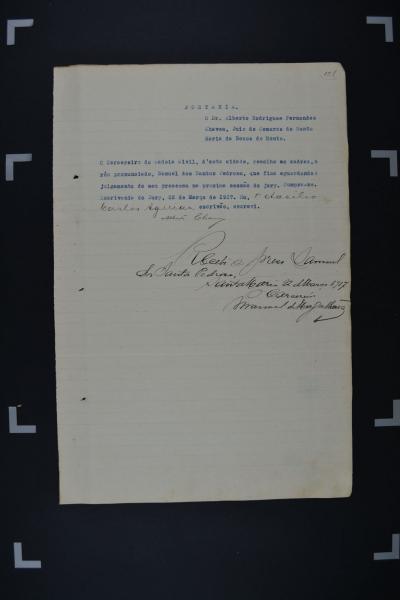 PORTARIA.
O Dr. Alberto Rodrigues Fernandes
Chaves, Juiz de Comarca de Santa
Maria da Bocca do Monte.
O Carcereiro da Cadeia Civil, d'esta cidade, recolha ao xadrez, o
réo pronunciado, Manoel dos Santos Pedroso, que fica aguardando
julgamento do seu processo na proxima sessão do jury. Cumpra-se.
Escrivania do Jury, 22 de Março de 1917. Eu,
Carlos escrivão, escrevi.
Recebi o preso Manuel
dos Santos Pedroso,
Santa Maria 22 de Março 1917
O Carcereiro
Manuel